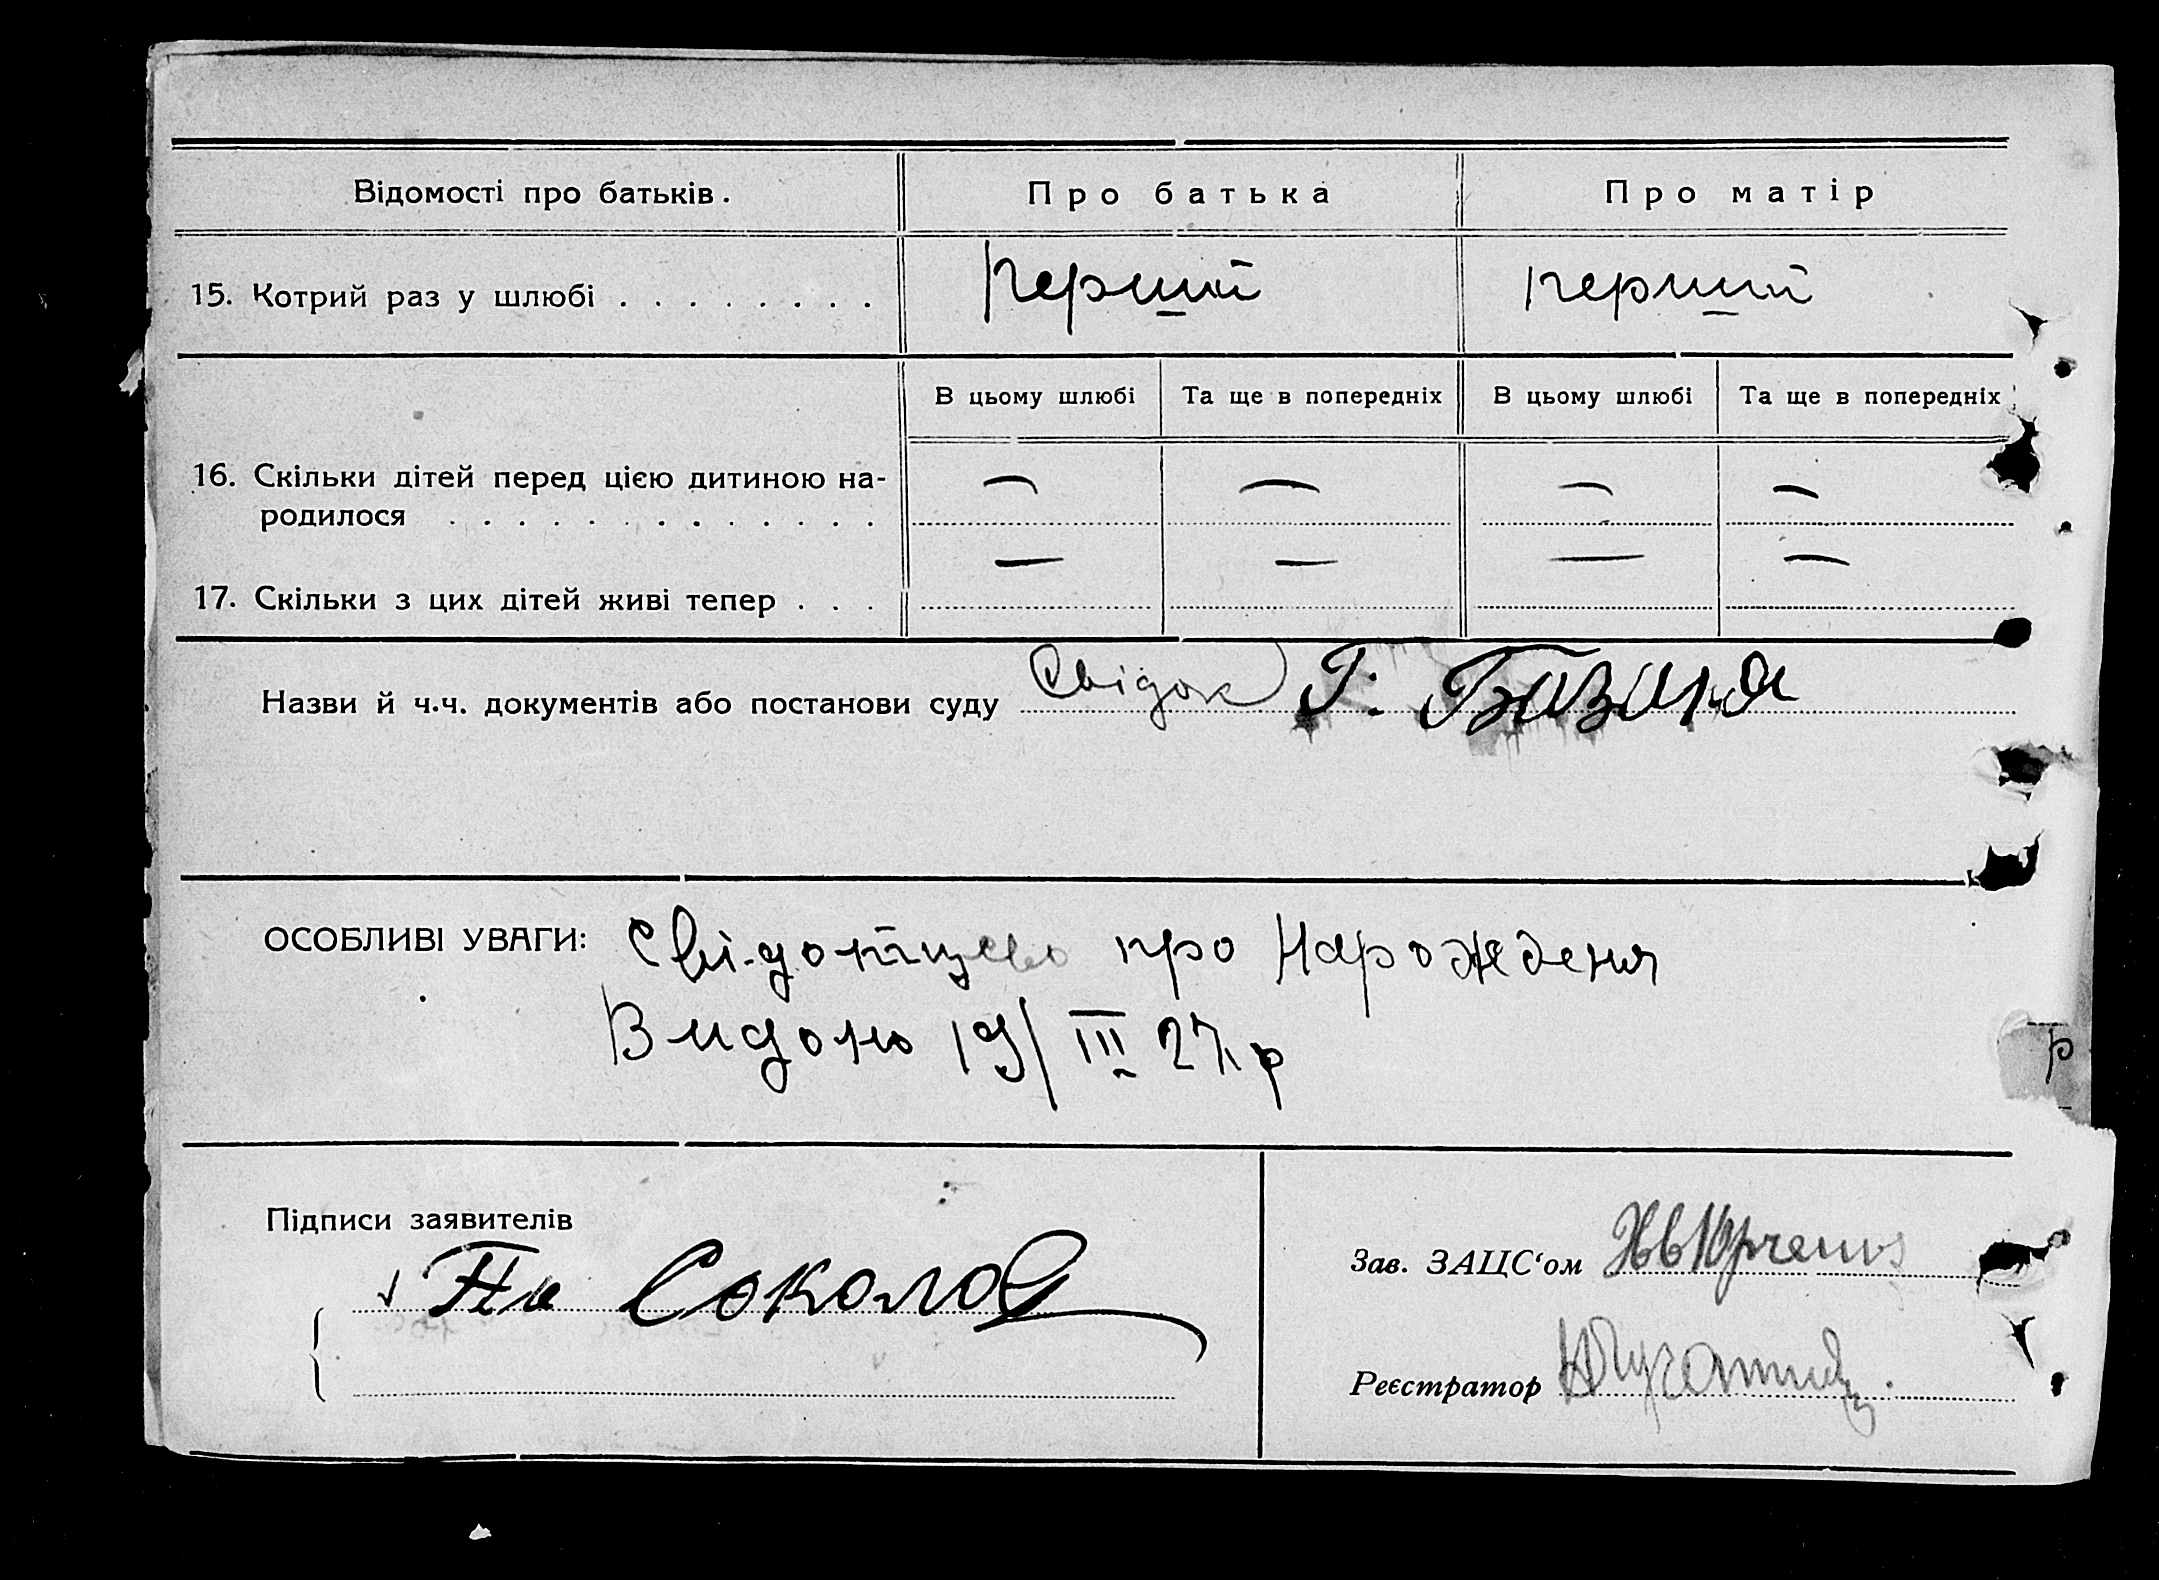 Відомості про батьків. Про батька Про матір
15. Котрий раз у шлюбі . . . . . . . . перший перший
В цьому шлюбі Та ще в попередніх В цьому шлюбі Та ще в попередніх
16. Скільки дітей перед цією дитиною на- — — — —
родилося . . . . . . . . . . . . .
— — — —
17. Скільки з цих дітей живі тепер . . .
Назви й ч.ч. документів або постанови суду Свідок Г.
ОСОБЛИВІ УВАГИ: Свідотцтво про Народженя
Видоно 19/III 27 р
Підписи заявителів
Соколов
Зав. ЗАЦС‘ом
Реєстратор
р